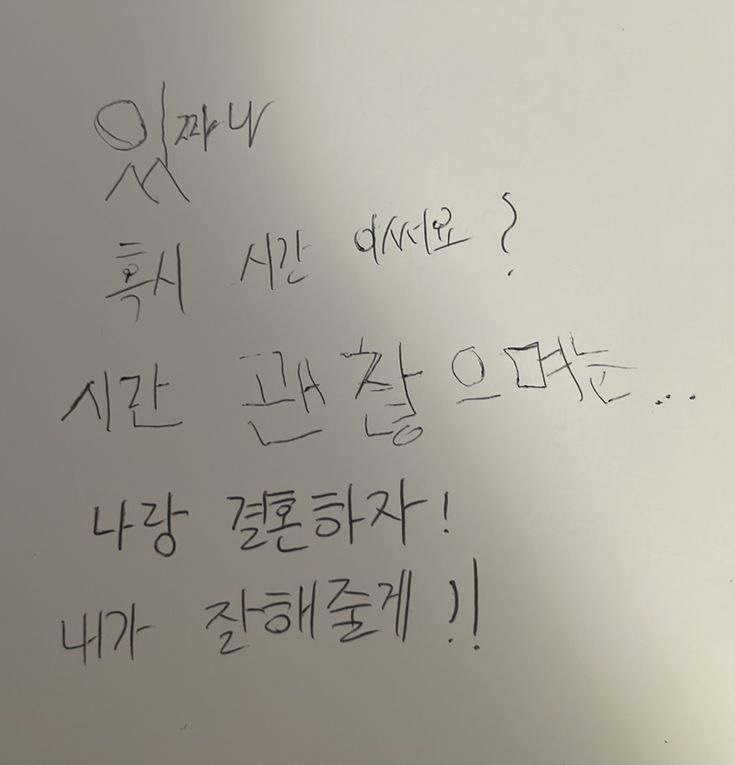 있짜나
혹시 시간 이써요?
시간 괜찮으며는...
나랑 결혼하자!
내가 잘해줄게!!